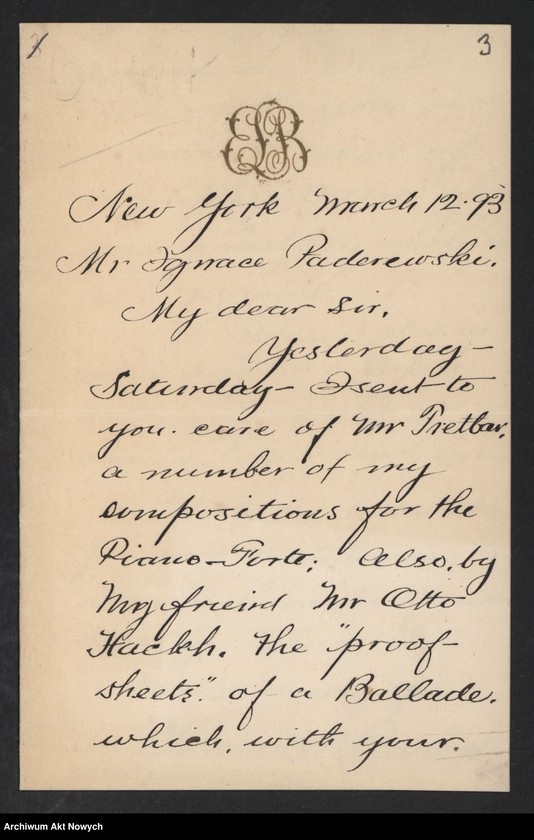 3
New York March 12. 93
Mr Ignace Paderewski.
My dear Sir.
Yesterday —
Saturday — I sent to
you. care of Mr Tretbar.
a number of my
compositions for the
Piano-Forte; Also, by
My friend Mr Otto
Hackh. the "proof-
sheets". of a Ballade.
which, with your.
Archiwum Akt Nowych